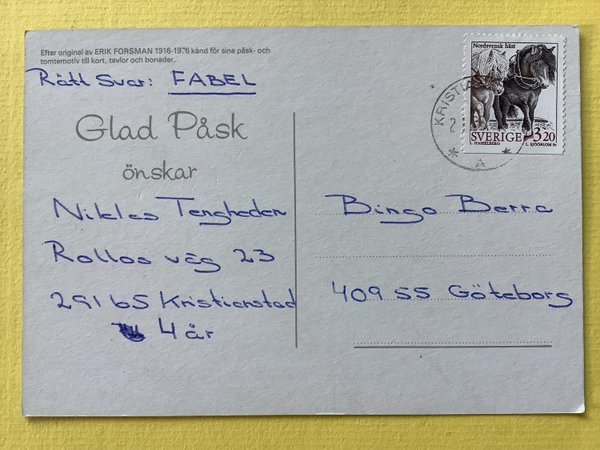 Efter original av ERIK FORSMAN 1916-1976 känd för sine påsk- och
tomtemotiv till kort, tavlor och bonader.
Rätt Svar: FABEL
Glad Påsk
önskar
Niklas Tengheden
Rollos väg 23
291 65 Kristianstad
4 år
Nordsvensk häst
SVERIGE 3.20
L. SJÖÖBLOM SC
KRISTIA
2
A
Bingo Berra
409 55 Göteborg